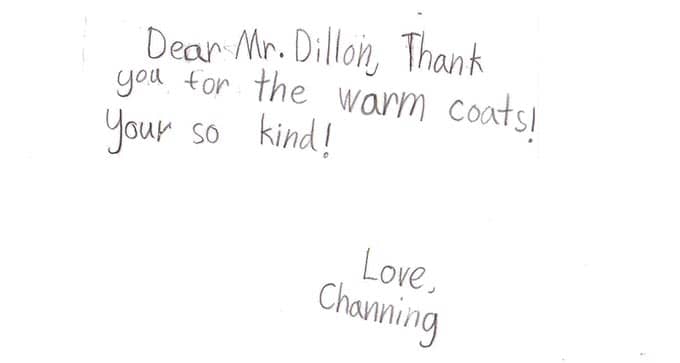 Dear Mr. Dillon, Thank
you for the warm coats!
Your so kind!
Love,
Channing